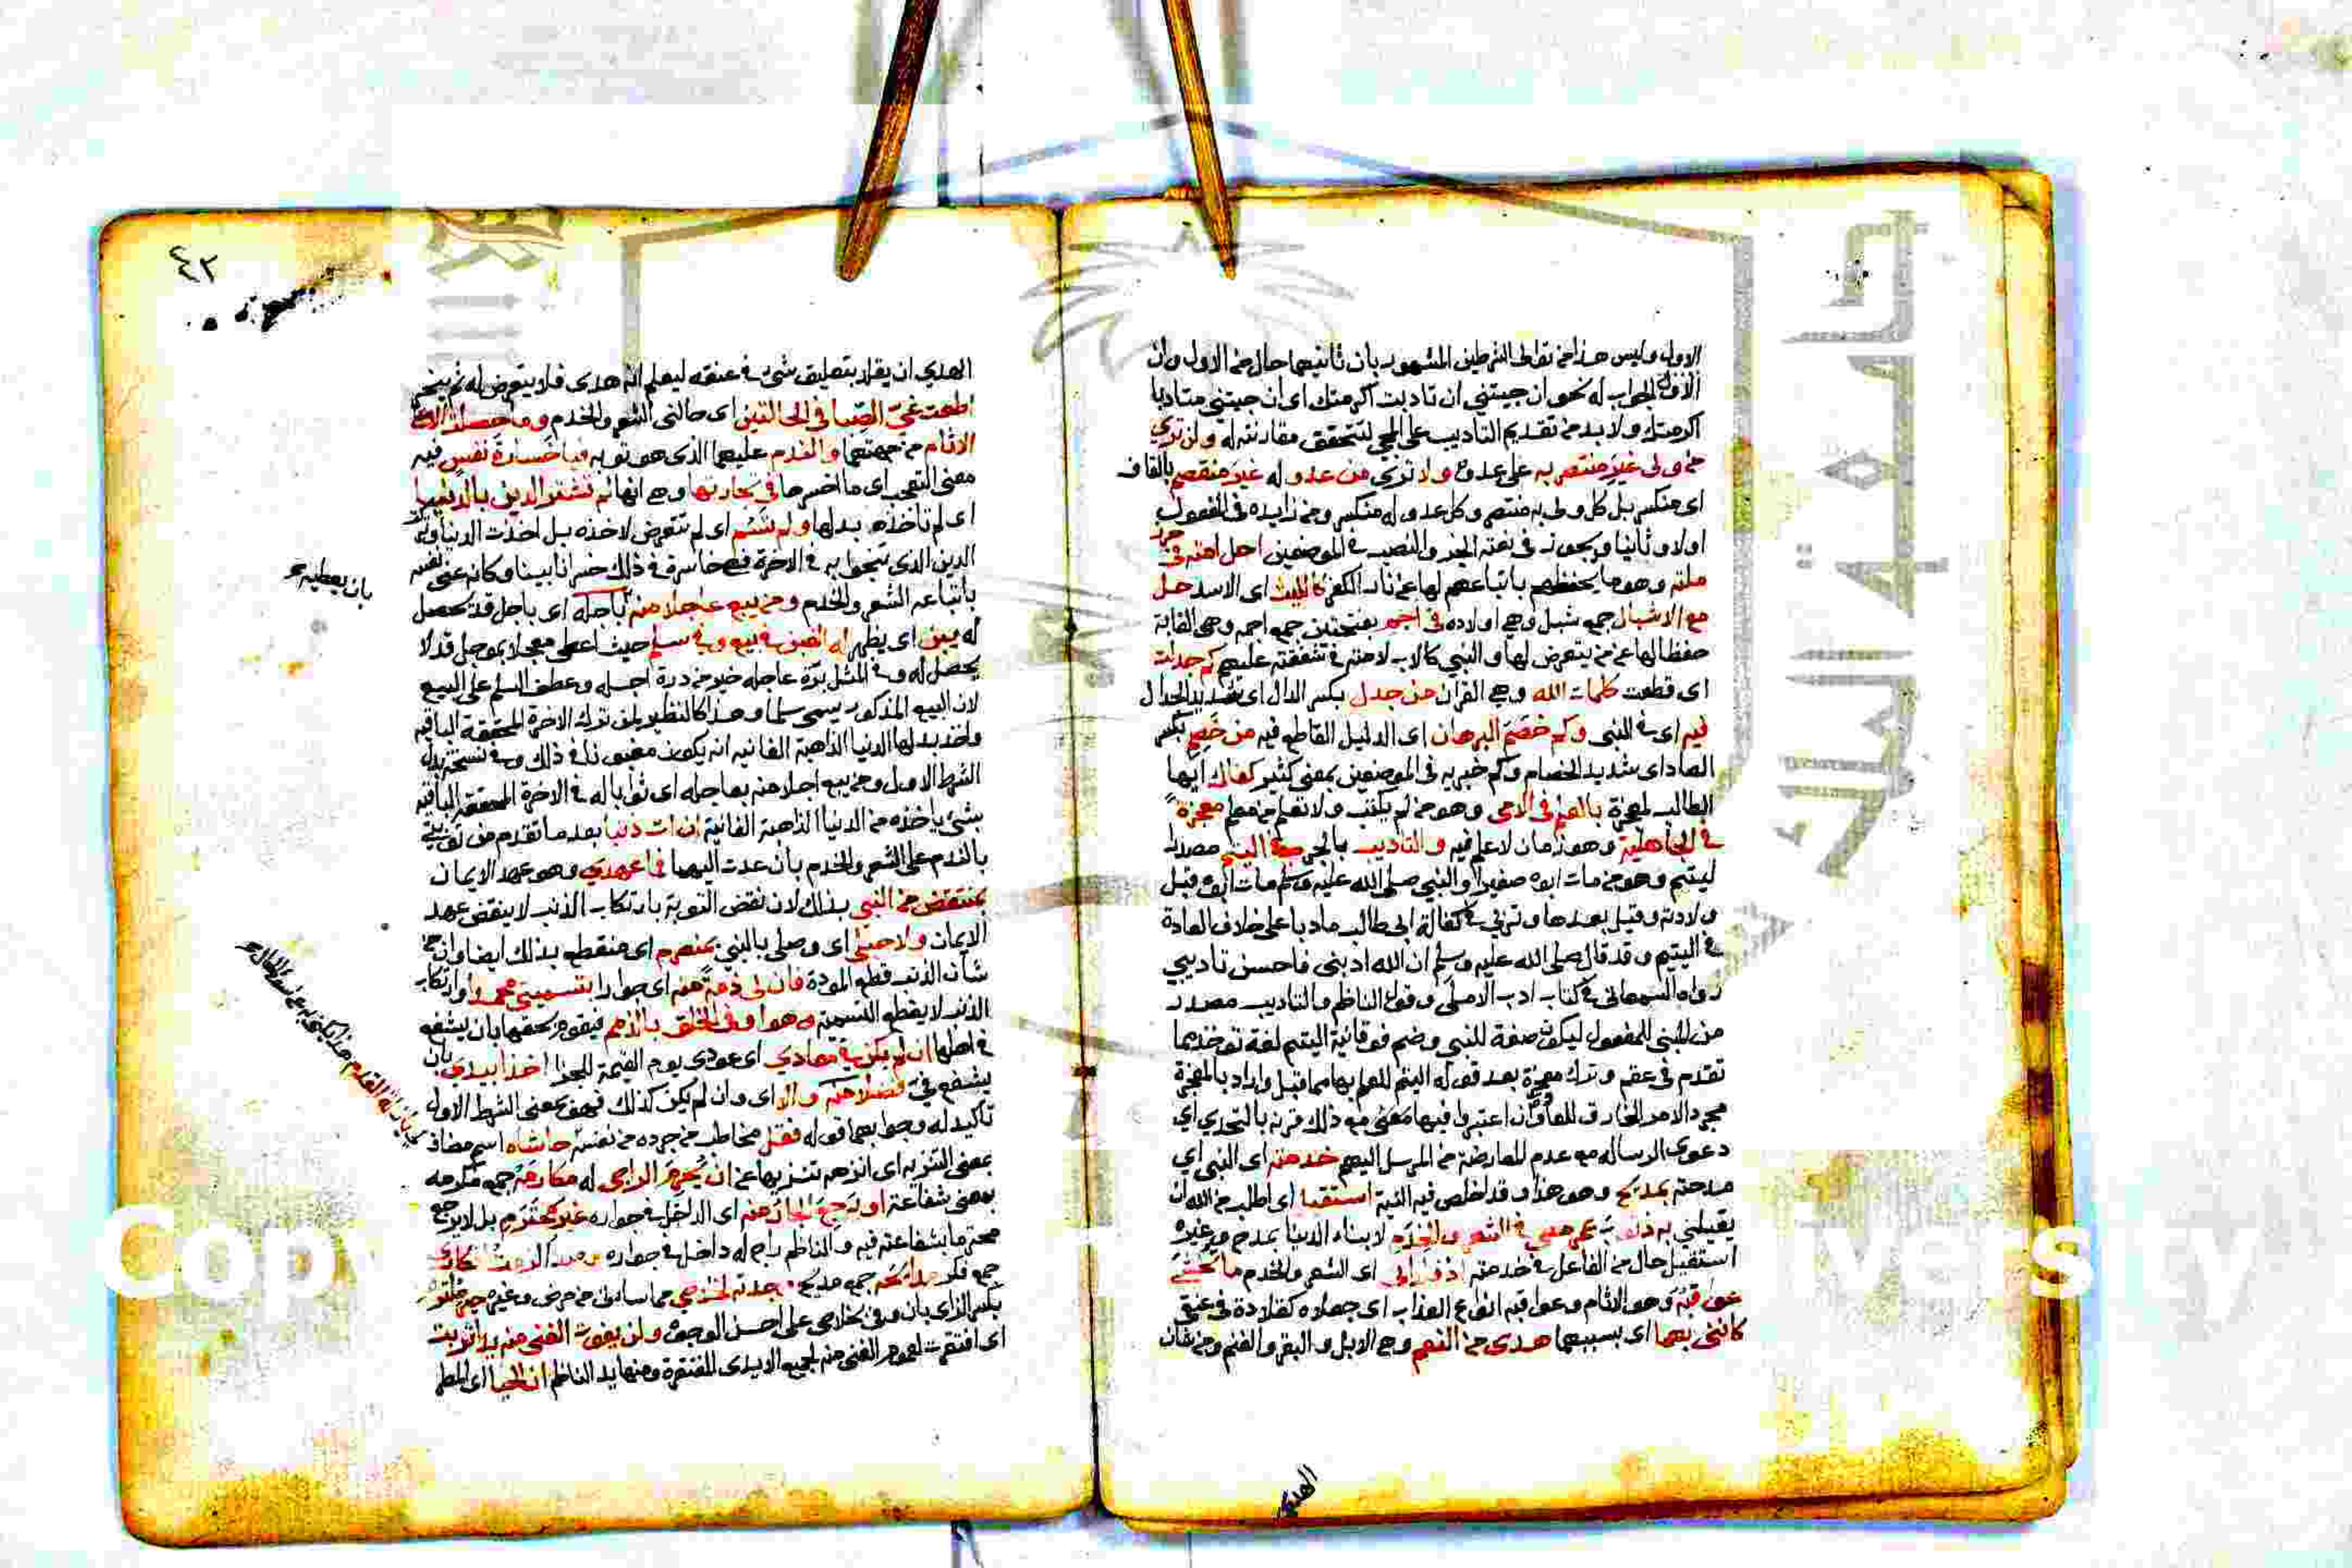 الاول وليس هذا من توالي الشرطين المشهور بان ثانيهما حال من الاول وان
الاول الجواب له نحو ان جيتني ان تادبت اكرمتك اى ان جيتني متادبا
اكرمتك ولا بد من تقديم التاديب على المجي لتتحقق مقارنته له ولن تري
من ولى غير منتصر به على عدوه ولا تري من عدو له غير منقصم بالقاف
اى منكسر بل كل ولى به منتصر وكل عدو له منكسر ومن زايده فى المفعول
اولا وثانيا ويجوز فى نعته الجر والنصب في الموضعين احل امته في حرز
ملته وهو ما يحفظهم باتباعهم لها عن نار الكفر كالليث اى الاسد حل
مع الاشبال جمع شبل وهي اولاده فى اجم بفتحتين جمع اجمه وهي الغابة
حفظا لها عن من يتعرض لها والنبي كالاب لامته في شفقته عليهم كم جدلت
اى قطعت كلمات الله وهي القران من جدل بكسر الدال اى شديد الجدال
فيه اى في النبى وكم خصم البرهان اى الدليل القاطع فيه من خصم بكسر
الصاد اى شديد الخصام وكم خبريه فى الموضعين بمعنى كثير كفاك ايها
الطالب لمعجزة بالعلم فى الامى وهو من لم يكتب ولا تعلم من معلم معجزة
في الجاهلية وهو زمان لا علم فيه والتاديب بالجر في اليتم مصدر
ليتم وهو من مات ابوه صغيرا والنبي صلى الله عليه وسلم مات ابوه قبل
ولادته وقيل بعدها وتربي في كفالة ابى طالب مادبا على خلاف العادة
في اليتيم وقد قال صلى الله عليه وسلم ان الله ادبنى فاحسن تاديبي
رواه السمعانى في كتاب ادب الاملى وقول الناظم والتاديب مصدر
من المبنى للمفعول ليكون صفة للنبي وضم فوقانية اليتم لغة توخذ مما
تقدم فى عقم وترك معجزة بعد قوله اليتم للعلم بها مما قبل واراد بالمعجزة
مجرد الامر الخارق للعادة وان اعتبروا فيها معنى مع ذلك قرنه بالتحدي اي
دعوى الرسالة مع عدم المعارضة من المرسل اليهم خدمته اى النبى اي
مدحته بمديح وهو هذا وقد اخلص فيه النية استقيل اى اطلب من الله ان
يقيلني به ذنوب عمر مضى فى الشعر والخدم لابناء الدنيا بمدح وغيره
استقيل حال من الفاعل فى خدمته اذ قلداني اى الشعر والخدم ما تخشى
عواقبه وهو الاثام وعواقبه انواع العذاب اى جعلاه كقلادة فى عنقى
كاننى بهما اى بسببهما هدى من النعم وهي الابل والبقر والغنم ومن شان
الهدى
٤٢
الهدي ان يقلد بتعليق شئ في عنقه ليعلم انه هدى فلا يتعرض له ثم ينحر
اطعت غي الصبا فى الحالتين اى حالتى الشعر والخدم وما حصلت الا على
الاثام من جهتهما والندم عليهما الذى هو توبه فيا خسارة نفس فيه
معنى التعجب اى ما اخسرها في تجارتها وهي انها لم تشتر الدين بالدنيا
اى لم تاخذه بدلها ولم تسم اى لم تتعرض لاخذه بل اخذت الدنيا وتركت
الدين الذى تنجوا به في الاخرة فهي خاسرة في ذلك خسرانا بينا وكانه عنى نفسه
باتباعه الشعر والخدم ومن يبع عاجلا منه باجله اى باجل قد يحصل
بان يعطيه
له يبن اى يظهر له الغبن في بيع وفي سلم حيث اعطى معجلا بموجل قد لا
يحصل له وفي المثل برة عاجله خير من درة اجله وعطف السلم على البيع
لان البيع المذكور يسمى سلما وهذا كالنظير لمن ترك الاخرة المحققة الباقيه
واخذ بدلها الدنيا الذاهبة الفانيه انه يكون مغبونا في ذلك وفي نسخة بدل
الشرط الاول ومن يبع اجلا منه بعاجله اى ثوابا له في الاخرة المحققة الباقيه
بشئ ياخذه من الدنيا الذاهبة الفانية ان ات ذنبا بعد ما تقدم من توبتي
بالندم على الشعر والخدم بان عدت اليهما فما عهدي وهو عهد الايمان
بمنتقض من النبي بذلك لان نقض التوبة بارتكاب الذنب لا ينقض عهد
الايمان ولا حبلى اى وصلى بالنبي بمنصرم اى منقطع بذلك ايضا وان
شان الذنب قطع المودة فان لى ذمة منه اى جوارا بتسميتي محمدا وارتكاب
الذنب لا يقطع التسمية وهو اوفى الخلق بالذمم فيقوم بحقها بان يشفع
في اهلها ان لم يكن في معادي اى عودى يوم القيمة للجزا اخذا بيدي بان
يشفع فيّ فضلا منه والا اى وان لم يكن كذلك فهو بمعنى الشرط الاول
تاكيد له وجوابهما قوله فقل مخاطب من جرده من نفسه حاشاه اسم مضاف
بمعنى التنزيه اى انزهه تنزيها عن ان يحرم الراجى له مكارمه جمع مكرمه
بمعنى شفاعة او يرجع الجار منه اى الداخل في جواره غير محترم بل لا يرجع
محترما بشفاعته فيه والناظم راج له داخل في جواره ومنذ الزمت افكاري
جمع فكر مدائحه جمع مديح وجدته لخلاصي مما ساءنى من مرض وغيره خير ملتزم
بكسر الزاى بان وفى بخلاصى على احسن الوجوه ولن يفوت الغنى منه يدا تربت
اى افتقرت لعموم الغنى منه لجميع الايدى المفتقرة ومنها يد الناظم ان الحيا اى المطر